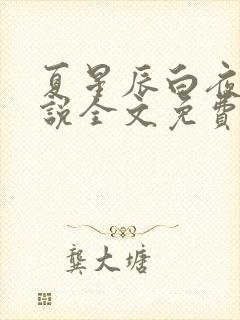 夏星辰白夜
說全文免費
龔大塘